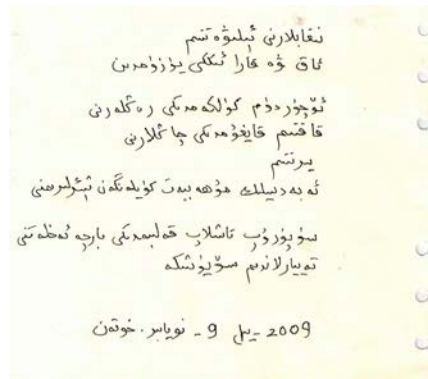 نىقابلارنى ئېلىۋەتتىم
ئاق ۋە قارا ئىككى يۈزۈمدىن
ئۆچۈردۈم كۈلكەمدىكى رەڭلەرنى
قاقتىم قايغۇمدىكى چاڭلارنى
يىرتتىم
ئەبەدىيلىك مۇھەببەت كۈيلەنگەن شېئىرلىرىمنى
سۈپۈرۈپ تاشلاپ قەلبىمدىكى بارچە ئەخلەتنى
تەييارلاندىم سۆيۈشكە
2009 - يىل 9 - نويابىر. خوتەن